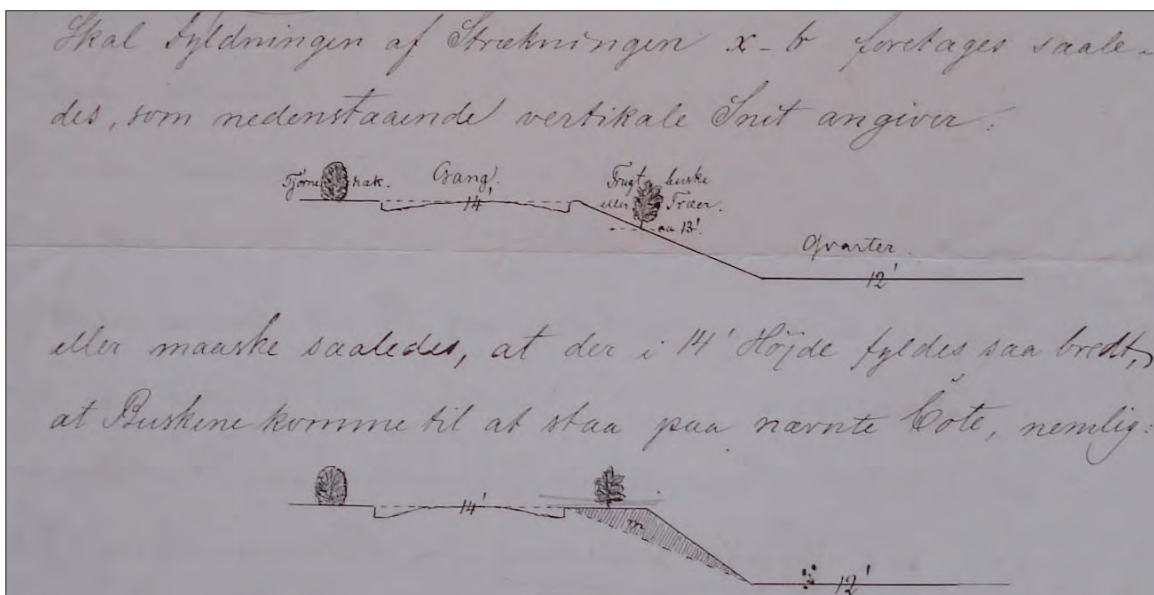 Skal Fyldningen af Strækningen x - b foretages saale-
des, som nedenstaaende vertikale Snit angiver:
Tjørne hæk. Gang. Frugt buske
eller Træer.
14' aa 13'.
Qvarter.
12'
eller maaske saaledes, at der i 14' Højde fyldes saa bredt,
at Buskene komme til at staa paa nævnte Cote, nemlig:
14' m
12'